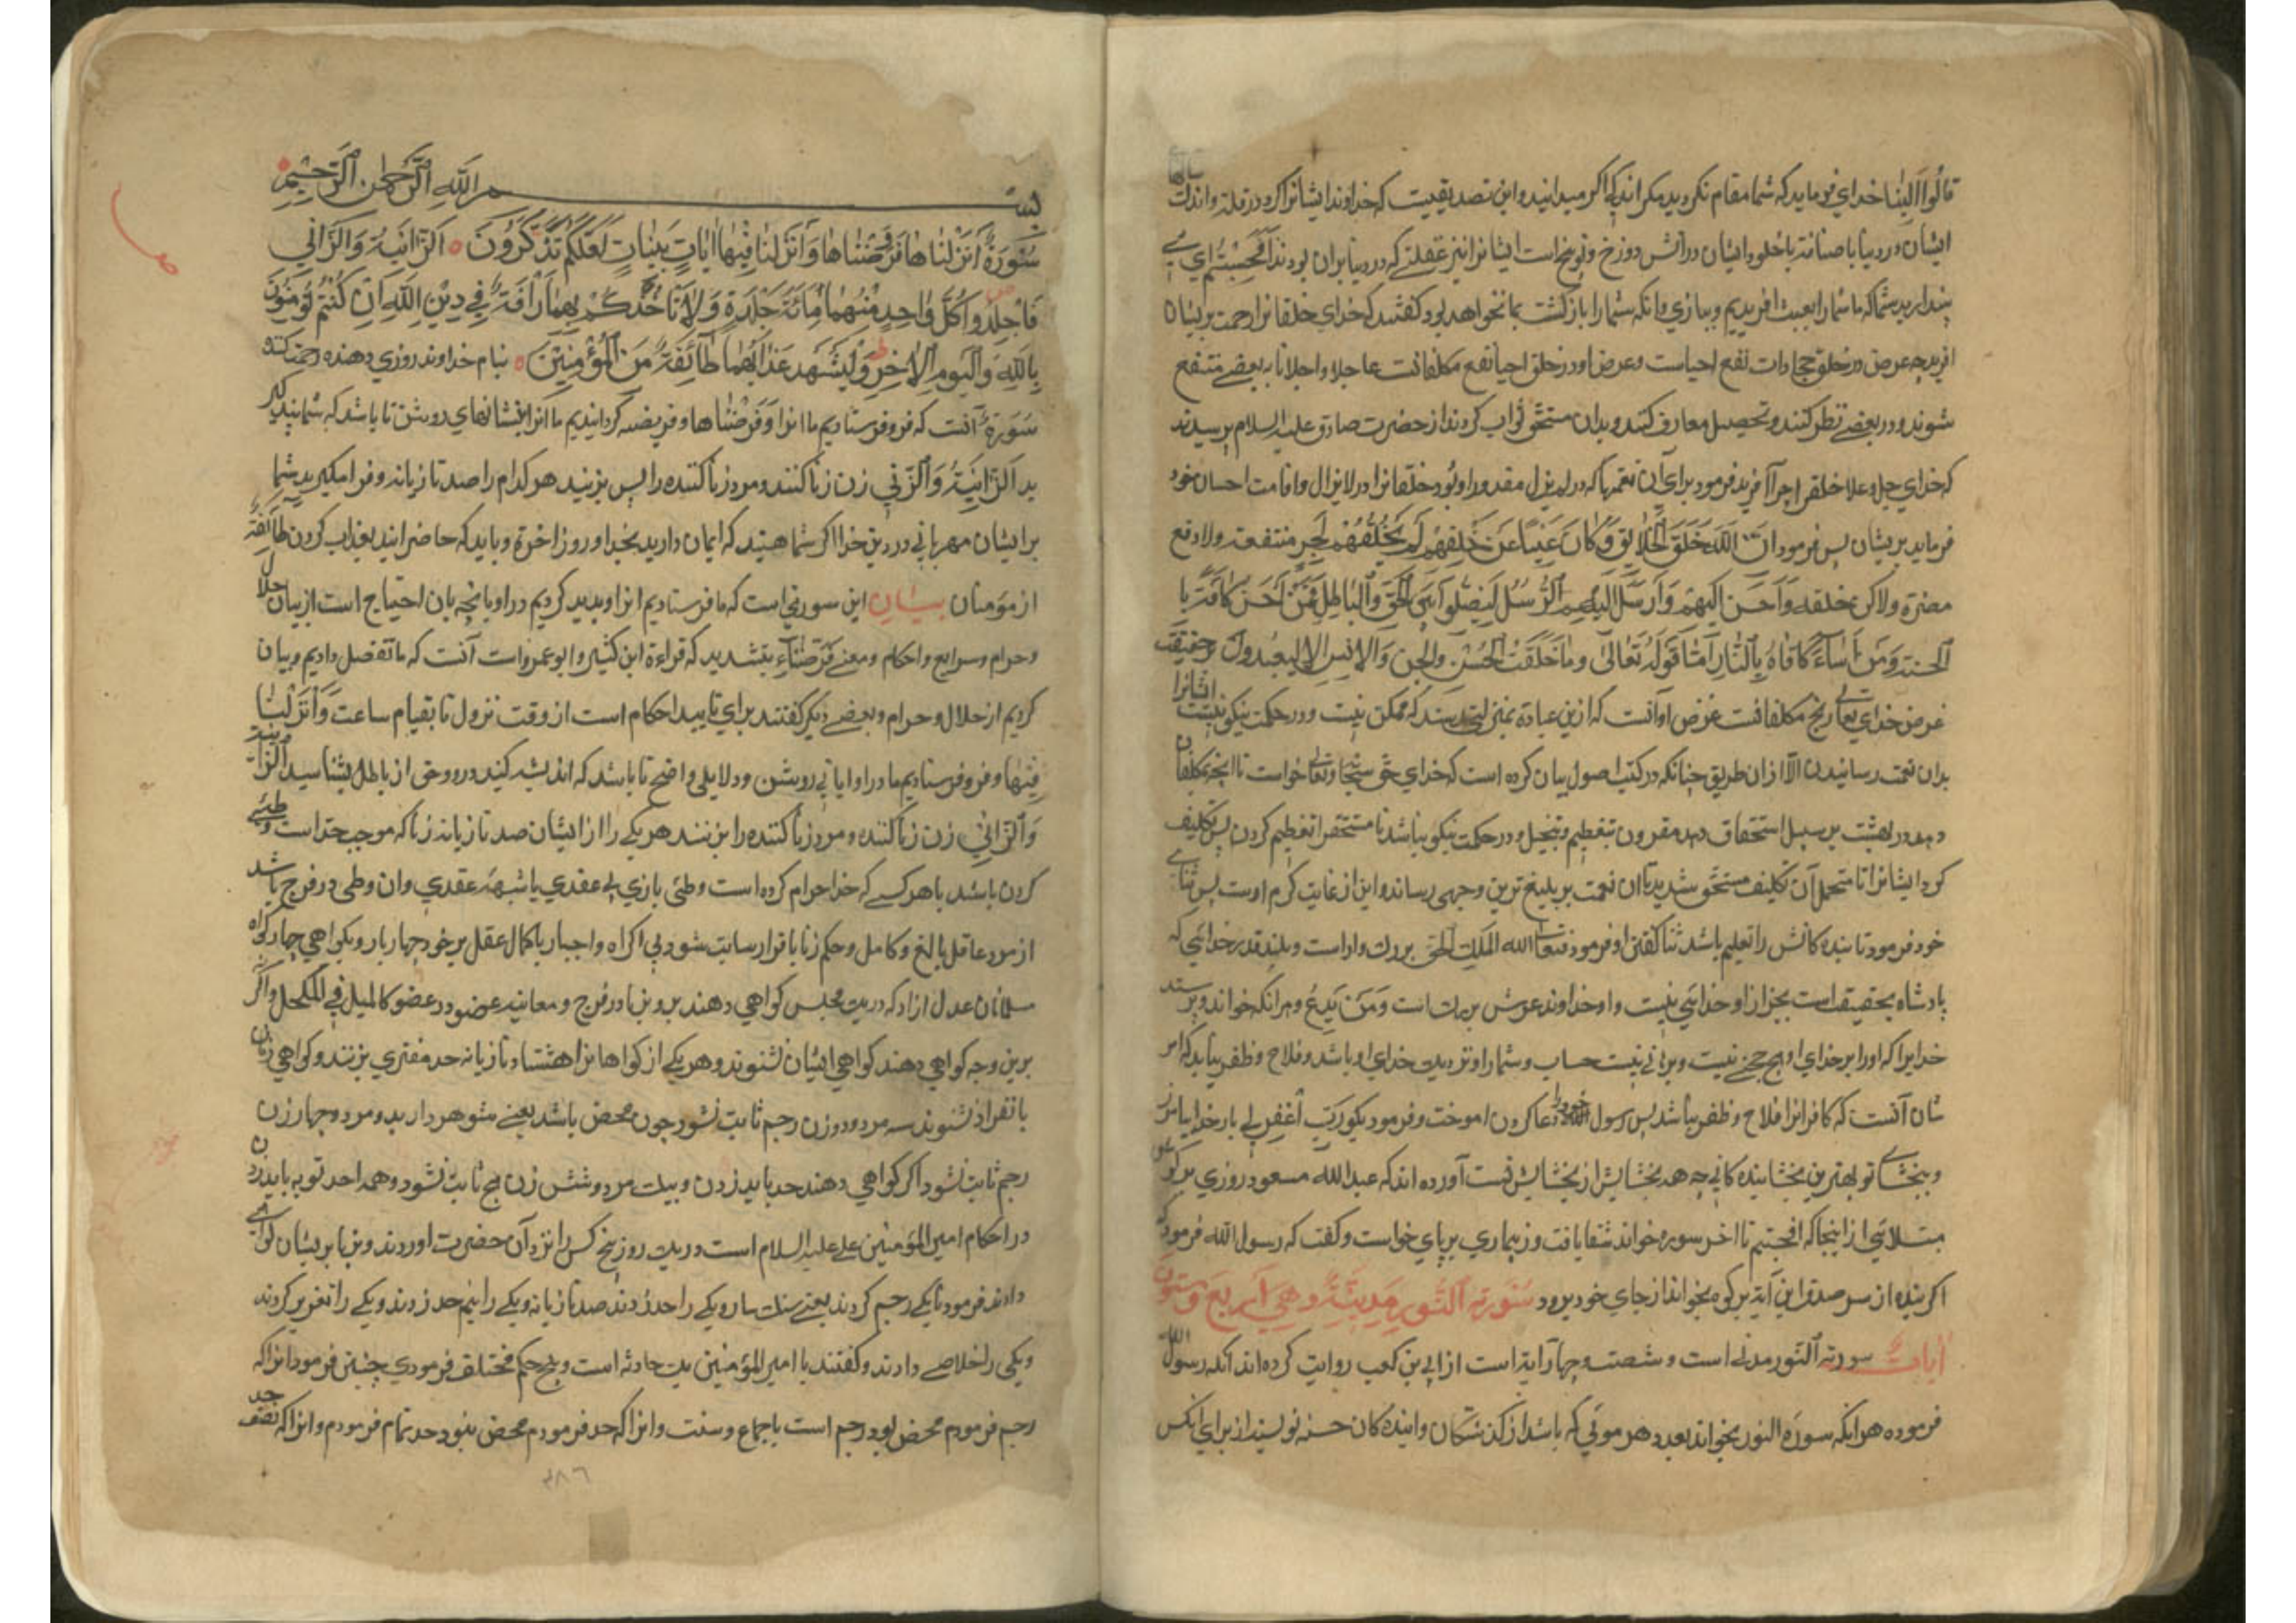 خدای فرماید که شما مقام نکردید مکر اندکی اکر میدانید و این تصدیقیست که خداوند ایشانرا کرد در قلة و اندک
ایشان در دنیا باضافة با خلود ایشان در آتش دوزخ و توبیخ است ایشانرا نیز غفلتی که در دنیا بران بودند أَفَحَسِبْتُمْ ای
پندارید شما که ما شما را بعبث افریدیم و ببازی و انکه شما را بازکشت بما نخواهد بود کفتند که خدای خلقانرا
افرید چه غرض در خلق جمادات نفع احیاست و غرض او در خلق احیا نفع مکلفانست عاجلا و اجلا تا ببعضی منتفع
شوند و در بعضی نظر کنند و تحصیل معارف کنند و بدان مستحق ثواب کردند از حضرت صادق علیه السلام پرسیدند
که خدای جل و علا خلق را چرا آفرید فرمود برای آن نعمتها که در لم یزل مقدور او بود خلقانرا در لایزال و اقامت احسان خود
فرماید بریشان پس فرمود ان الله خَلَقَ الخَلَایِقَ وَکَانَ غَنِیًّا عَنْ خَلْقِهِمْ لَمْ یَخْلُقْهُمْ لِجَرِّ منتفعة ولا دفع
مضرة ولاکن خلقهم وَاَحْسَنَ اِلَیْهِمْ وَاَرْسَلَ اِلَیْهِمِ الرُّسُلَ لِیَفْصِلُوا بَیْنَ الْحَقِّ وَالْبَاطِلِ فَمَنْ اَحْسَنَ کَافَاَهُ بِا
الجنة وَمَنْ اَسَاءَ کَافَاهُ بِالنَّارِ اَمَّا قَولُهُ تَعَالی وما خَلَقْتُ الْجِنَّ وَالاِنْسَ اِلا لِیَعْبُدُونَ و حقیقت
غرض خدای تعالی مکلفانست غرض او آنست که ازین عبادة بمنزلتی رسند که ممکن نیست و در حکمت نیکو نیست ایشانرا
بدان نعمت رسانیدن الا ازان طریق چنانکه در کتب اصول بیان کرده است که خدای حق سبحانه و تعالی خواست تا انچه بمکلفان
دهد در بهشت بر سبیل استحقاق دهد مقرون بتعظیم و تبجیل و در حکمت نیکو نباشد نا مستحق را تعظیم کردن پس تکلیف
کرد ایشانرا تا متحمل آن تکلیف مستحق شدند تا ان نعمت بر بلیغ ترین وجهی رساند و این از غایت کرم اوست پس ثنای
خود فرمود تا بنده کانش را تعلیم باشد ثنا کفتن او فرمود فَتَعَالَی الله المَلِکُ الحَقُّ بزرک وار است و بلند قدر خدایی که
پادشاه بحقیقت است بجز از او خدایی نیست و او خداوند عرش بزرک است وَمَنْ یَدْعُ و هر انکه خواند و پرستد
خدایرا که او را بر خدای او هیچ حجتی نیست و برهانی نیست حساب و شمار او نزدیک خدای او باشد و فلاح و ظفر نیابد که امر
شان آنست که کافرانرا فلاح و ظفر نباشد پس رسول خود را دعا کردن اموخت و فرمود بکو رَبِّ اغْفِرْ لی بار خدایا بیامرز
و ببخشای تو بهترین بخشاینده کانی چه همه بخشایش از بخشایش تست آورده اند که عبدالله مسعود روزی بر
مبتلایی از اینجا که افحسبتم تا اخر سوره خواند شفا یافت و ز بیماری بر پای خواست و کفت که رسول الله فرمود
اکر بنده از سر صدق این آیة بر کوه بخواند از جای خود برود سُورَة النُّور مَدَنِیَّةٌ وَهِیَ اَرْبَعُ وَسِتُّونَ
آیات سورة النور مدنی است و شصت و چهار آیة است از ابی بن کعب روایت کرده اند که رسول الله
فرموده هر انکه سورة النور بخواند بعدد هر مومنی که باشد از کذشتکان و اینده کان حسنه نویسند از برای انکس
بسم الله الرَّحْمٰنِ الرَّحِیمِ
سُورَةٌ اَنْزَلْنَاهَا وَفَرَضْنَاهَا وَاَنْزَلْنَا فِیهَا اٰیَاتٍ بَیِّنَاتٍ لَعَلَّکُمْ تَذَکَّرُونَ ه اَلزَّانِیَةُ وَالزَّانِی
فَاجْلِدُوا کُلَّ وَاحِدٍ مِنْهُمَا مِائَةَ جَلْدَةٍ وَلَا تَأْخُذْکُمْ بِهِمَا رَأْفَةٌ فِی دِینِ اللَّهِ اِنْ کُنْتُمْ تُؤْمِنُونَ
بِاللَّهِ وَالْیَومِ الْاٰخِرِ وَلْیَشْهَدْ عَذَابَهُمَا طَائِفَةٌ مِنَ الْمُؤْمِنِینَ ه بنام خداوند روزی دهنده رحمت کننده
سُورَةٌ آنست که فرو فرستادیم ما انرا وَفَرَضْنَاهَا و فریضه کردانیدیم ما انرا نشانهای روشن تا باشد که شما پند کیر
ید اَلزَّانِیَةُ وَالزَّانِی زن زنا کننده و مرد زنا کننده را پس بزنید هر کدام را صد تازیانه و فرا مکیرید شما
بر ایشان مهربانی در دین خدا اکر شما هستید که ایمان دارید بخدا و روز اخرة و باید که حاضر ایند بعذاب کردن طَائِفَةٌ
از مؤمنان بیان این سورتی است که ما فرستادیم انرا و پدید کردیم در او بانچه بان احتیاج است از بیان حلال
و حرام و شرایع و احکام و معنی فَرَّضْنَاهَا بتشدید که قراءة ابن کثیر و ابو عمرو است آنست که ما تفصیل دادیم و بیان
کردیم از حلال و حرام و بعضی دیکر کفتند برای تایید احکام است از وقت نزول تا بقیام ساعت وَاَنْزَلْنَا
فِیهَا و فرو فرستادیم ما در او ایاتی روشن و دلایلی واضح تا باشد که اندیشه کنید در و و حق از باطل بشناسید اَلزَّانِیَةُ
وَالزَّانِی زن زنا کننده و مرد زنا کننده را بزنند هر یکی را از ایشان صد تازیانه زنا که موجب حد است وطئی
کردن باشد با هر کسی که خدا حرام کرده است وطئی بازی بی عقدی یا شبهه عقدی وان وطی در فرج باشد
از مرد عاقل بالغ و کامل و حکم زنا باقرار ثابت شود بی اکراه و اجبار با کمال عقل بر خود چهار بار و بکواهی چهار کواه
مسلمانان عدل ازاد که در یک مجلس کواهی دهند برو بزنا در فرج و معاینه عضو در عضو کالمیل فی المکحل و اکر
برین وجه کواهی دهند کواهی ایشان نشنوند و هر یکی از کواهانرا هشتاد تازیانه حد مفتری بزنند و کواهی زنان
بانفراد نشنوند سه مرد و دو زن رجم ثابت شود چون محصن باشد یعنی شوهر دارد و دو مرد و چهار زن
رجم ثابت نشود اکر کواهی دهند حد باید زدن و یک مرد و شش زن هیچ ثابت نشود و همه را حد توبه باید زدن
در احکام امیر المؤمنین علی علیه السلام است در یک روز پنج کس را نزد آن حضرت اوردند و بزنا بریشان کواهی
دادند فرمود تا یکی رجم کردند یعنی سنک سار و یکی را حد زدند صد تازیانه و یکی را نیم حد زدند و یکی را تعزیر کردند
و یکی را خلاصی دادند و کفتند یا امیر المؤمنین یک حادثه است و پنج حکم مختلف فرمودی چنین فرمود انرا که
رجم فرمودم محصن بود و رجم است باجماع و سنت و انرا که حد فرمودم محصن نبود حد تمام فرمودم و انرا که نصف حد